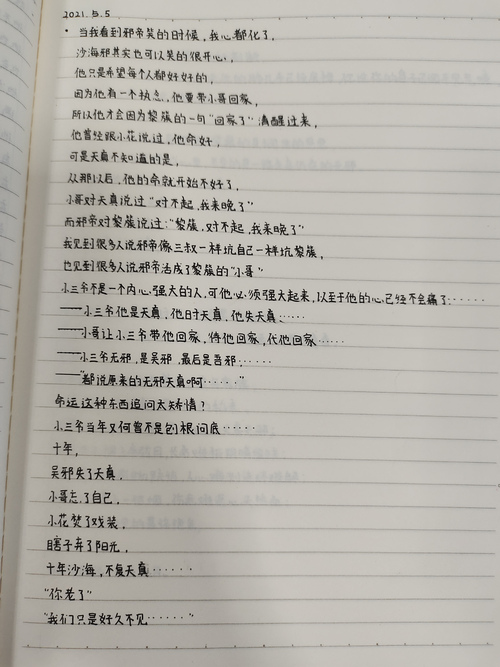 2021.5.5
· 当我看到邪帝笑的时候，我心都化了，
沙海邪其实也可以笑的很开心，
他只是希望每个人都好好的，
因为他有一个执念，他要带小哥回家，
所以他才会因为黎簇的一句“回家了”清醒过来，
他曾经跟小花说过，他命好，
可是天真不知道的是，
从那以后，他的命就开始不好了，
小哥对天真说过“对不起，我来晚了”
而邪帝对黎簇说过：“黎簇，对不起，我来晚了”
我见到很多人说邪帝像三叔一样坑自己一样坑黎簇，
也见到很多人说邪帝活成了黎簇的“小哥”
小三爷不是一个内心强大的人，可他必须强大起来，以至于他的心已经不会痛了······
——小三爷他是天真，他时天真，他失天真······
——小哥让小三爷带他回家，待他回家，代他回家······
——小三爷无邪，是吴邪，最后是吾邪······
——“都说原来的无邪天真啊······”
命运这种东西追问太矫情？
小三爷当年又何曾不是刨根问底······
十年，
吴邪失了天真，
小哥忘了自己，
小花焚了戏装，
瞎子弃了阳光，
十年沙海，不复天真······
“你老了”
“我们只是好久不见······”